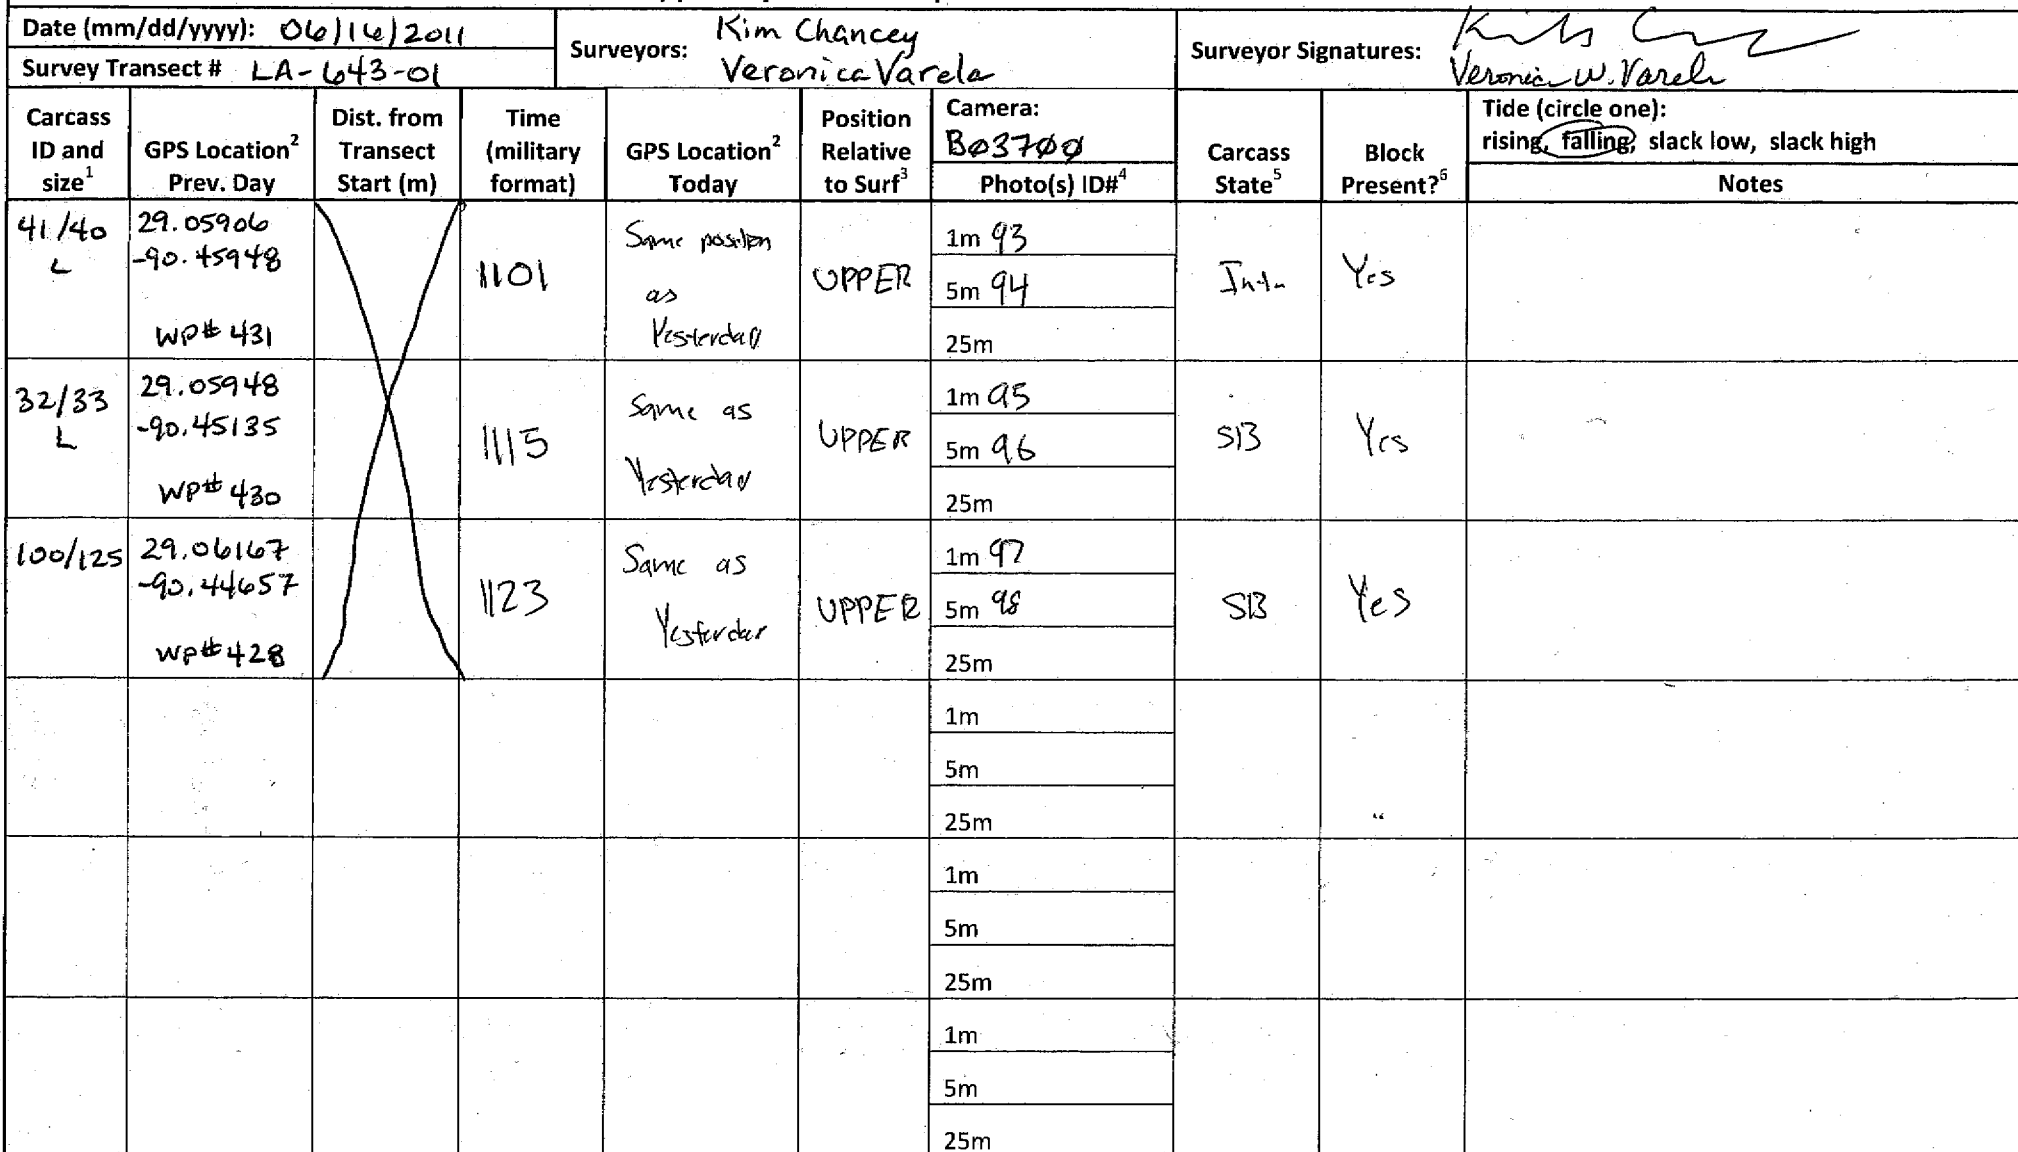 Date (mm/dd/yyyy): 06/16/2011
Survey Transect # LA-643-01
Surveyors: Kim Chancey
Veronica Varela
Surveyor Signatures:
Veronica W. Varela
Carcass ID and size1
GPS Location2 Prev. Day
Dist. from Transect Start (m)
Time (military format)
GPS Location2 Today
Position Relative to Surf3
Camera: BØ37ØØ
Photo(s) ID#4
Carcass State5
Block Present?6
Tide (circle one):
rising, falling, slack low, slack high
Notes
41/40 L
29.05906
-90.45948
WP# 431
1101
Same position
as
Yesterday
UPPER
1m 93
5m 94
25m
Yes
32/33 L
29.05948
-90.45135
WP# 430
1115
Same as
Yesterday
UPPER
1m 95
5m 96
25m
SB
Yes
100/125
29.06167
-90.44657
WP# 428
1123
Same as
Yesterday
UPPER
1m 97
5m 98
25m
SB
Yes
1m
5m
25m
1m
5m
25m
1m
5m
25m